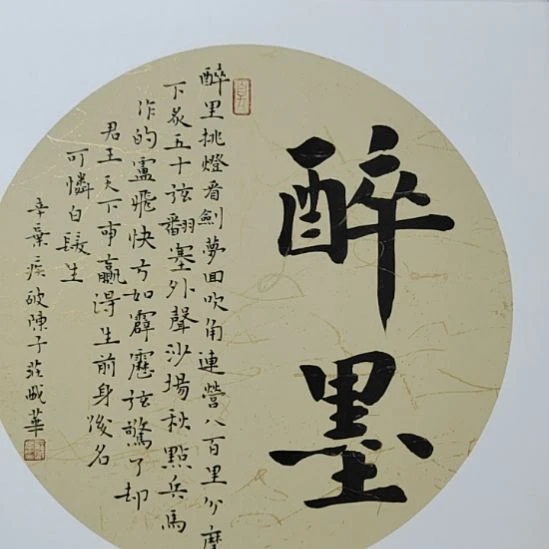 醉墨
醉里挑燈看劍夢回吹角連營八百里分麾
下炙五十弦翻塞外聲沙場秋點兵馬
作的盧飛快弓如霹靂弦驚了却
君王天下事贏得生前身後名
可憐白髮生
辛棄疾破陳子